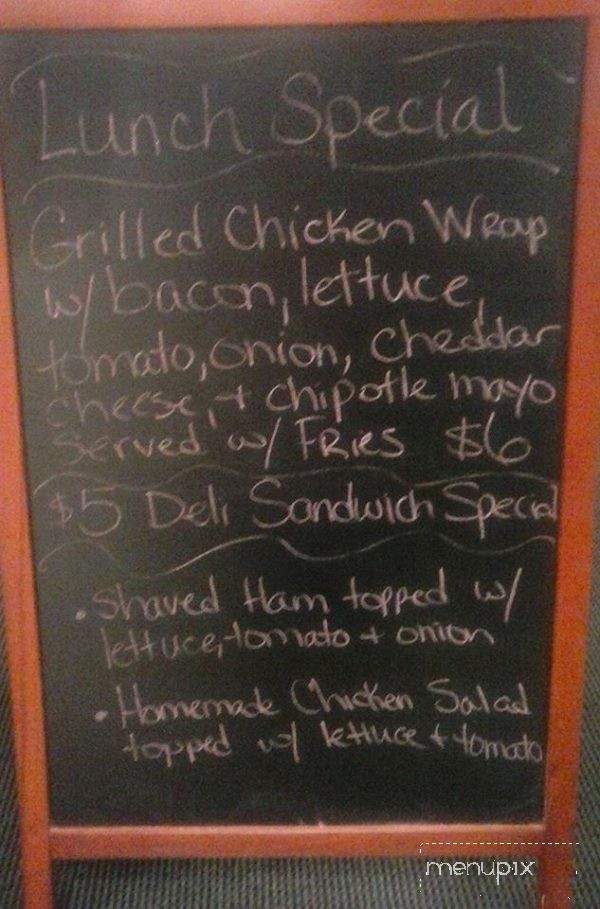 Lunch Special
Grilled Chicken Wrap
w/ bacon, lettuce,
tomato, onion, cheddar
cheese, + chipotle mayo
served w/ FRIES $6
$5 Deli Sandwich Special
• Shaved Ham topped w/
lettuce, tomato + onion
• Homemade Chicken Salad
topped w/ lettuce + tomato
menupix